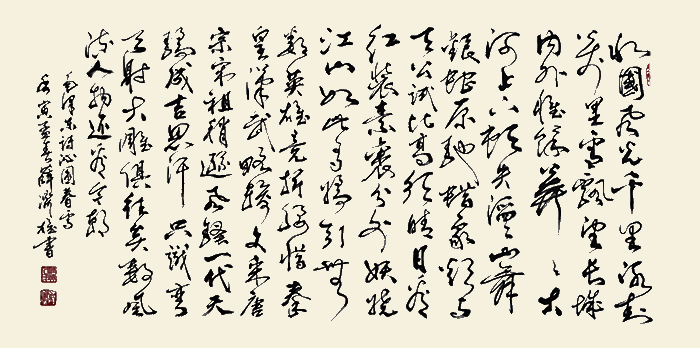 北國風光千里冰封
万里雪飄望長城
内外惟餘莽莽大
河上下頓失滔滔山舞
銀蛇原馳蠟象欲与
天公試比高須晴日看
紅裝素裹分外妖嬈
江山如此多嬌引無
數英雄竞折腰惜秦
皇漢武略輸文采唐
宗宋祖稍遜風騷一代天
驕成吉思汗只識彎
弓射大雕俱往矣數風
流人物还看今朝
毛澤東詩沁園春雪
壬寅孟春薛書